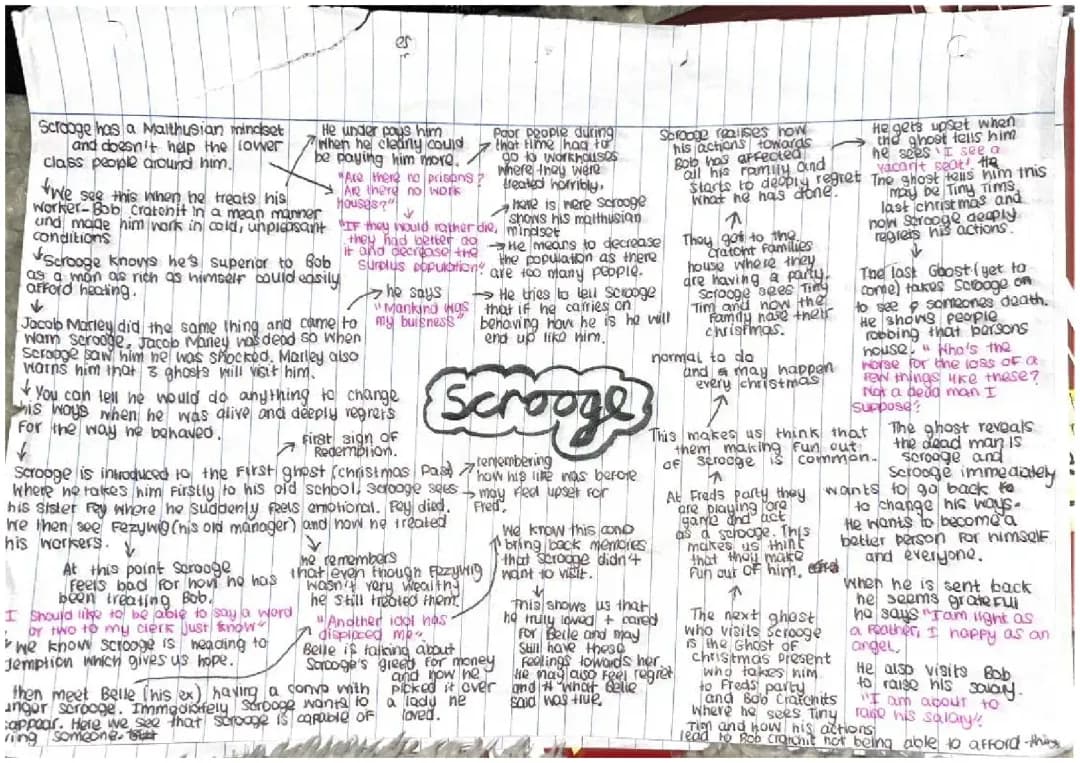 es
Scrooge has a Malthusian mindset
and doesn't help the lower
class people around him.
We see this when he treats his
worker-Bob Cratchit in a mean manner
and made him work in cold, unpleasant
conditions
Scrooge knows he's superior to Bob
as a man as rich as himself could easily
afford heating.
He under pays him
when he clearly could
be paying him more.
"Are there no prisons?
Are there no work
houses?"
"If they would rather die,
they had better do
it and decrease the
surplus population"
Poor people during
that time had to
go to workhouses
where they were
treated horribly.
here is were Scrooge
shows his malthusian
mindset
He means to decrease
the population as there
are too many people.
Jacob Marley did the same thing and came to
warn scrooge. Jacob Marley was dead so when
scrooge saw him he was shocked. Marley also
warns him that 3 ghosts will visit him.
he says
"Mankind was
my buisness"
He tries to tell Scrooge
that if he carries on
behaving how he is he will
end up like him.
You can tell he would do anything to change
his ways when he was alive and deeply regrets
for the way he behaved.
Scrooge
Scrooge is introduced to the first ghost (christmas Past)
where he takes him firstly to his old school, scrooge sees
his sister Fey where he suddenly feels emotional. Fey died.
We then see Fezywig (his old manager) and how he treated
his workers.
First sign of
Redemption.
remembering
how his life was before
may feel upset for
Fred.
At this point Scrooge
feels bad for how he has
been treating Bob.
I should like to be able to say a word
or two to my clerk just know"
We know Scrooge is heading to
demption which gives us hope.
he remembers
that even though Fezzywig
wasn't very wealthy
he still treated them.
then meet Belle (his ex) having a convo with
unger scrooge. Immediately scrooge wants to
appear. Here we see that scrooge is capable of
ring someone.
"Another idol has
displaced me"
Belle is talking about
Scrooge's greed for money
and how he
picked it over
a lady he
loved.
We know this convo
bring back memories
that Scrooge didn't
want to visit.
This shows us that
he truly loved + cared
for Belle and may
still have these
feelings towards her
He may also feel regret
and # what Belle
said was true.
The next ghost
who visits Scrooge
is the Ghost of
christmas present
who takes him
to Freds' party
and Bob Cratchits
where he sees Tiny
Tim and how his actions
lead to Bob Cratchit not being able to afford
At Freds party they
are playing
game and act
as a scrooge. This
makes us think
that they make
fun out of him.
This makes us think that
them making fun out
of scrooge is common.
normal to do
and may happen
every christmas
They got to the
Cratchit families
house where they
are having a party.
Scrooge sees Tiny
Tim and how the
family have their
christmas.
Scrooge realises how
his actions towards
Bob has affected
all his family and
starts to deeply regret
what he has done.
He gets upset when
the ghost tells him
he sees "I see a
vacant seat" the
The ghost tells him this
may be Tiny Tims
last christmas and
now scrooge deeply
regrets his actions.
The last Ghost (yet to
come) takes Scrooge on
to see someones death.
He shows people
robbing that persons
house. "Who's the
worse for the loss of a
few things like these?
Not a dead man I
suppose?
The ghost reveals
the dead man is
scrooge and
scrooge immediately
wants to go back to
to change his ways.
He wants to become a
better person for himself
and everyone.
When he is sent back
he seems gratefull
he says "I am light as
a feather, I happy as an
angel.
He also visits Bob
to raise his salary.
"I am about to
raise his salary".